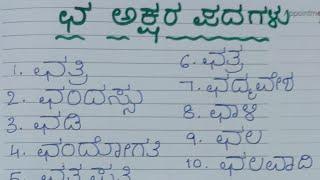 ಛ ಅಕ್ಷರ ಪದಗಳು
1. ಛತ್ರಿ
2. ಛಂದಸ್ಸು
3. ಛಡಿ
4. ಛಂದೋಗತಿ
6. ಛತ್ರ
7. ಛದ್ಮವೇಶ
8. ಛಾಳಿ
9. ಛಲ
10. ಛಲವಾದಿ